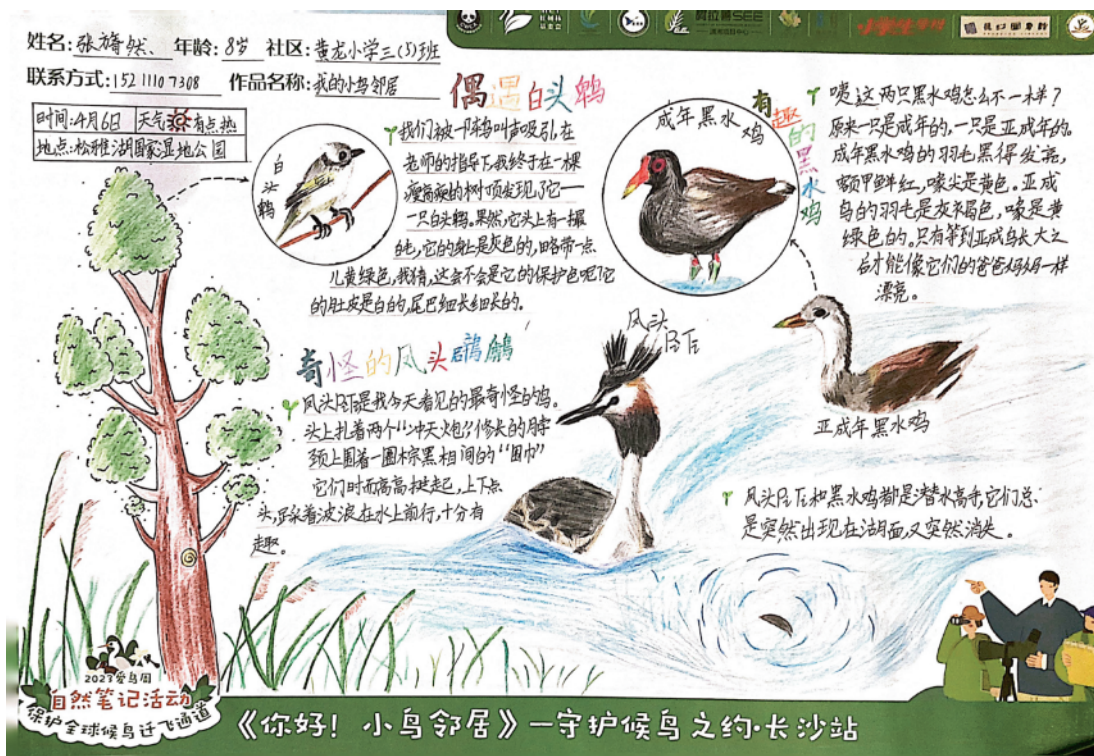 姓名:张旖然、 年龄:8岁 社区:黄龙小学三(5)班
联系方式:152 1110 7308 作品名称:我的小鸟邻居
时间:4月6日 天气 有点热
地点:松雅湖国家湿地公园
偶遇白头鹎
我们被一阵鸟叫声吸引,在
老师的指导下,我终于在一棵
瘦高瘦的树顶发现了它——
一只白头鹎。果然,它头上有一撮
白毛,它的身上是灰色的,略带一点
儿黄绿色,我猜,这会不会是它的保护色呢?它
的肚皮是白的,尾巴细长细长的。
白头鹎
成年黑水鸡
有趣的黑水鸡
咦这两只黑水鸡怎么不一样?
原来一只是成年的,一只是亚成年的。
成年黑水鸡的羽毛黑得发亮,
额甲鲜红,喙尖是黄色。亚成
鸟的羽毛是灰褐色,喙是黄
绿色的。只有等到亚成鸟长大之
后才能像它们的爸爸妈妈一样
漂亮。
亚成年黑水鸡
奇怪的凤头䴙䴘
凤头PìTī是我今天看见的最奇怪的鸟。
头上扎着两个“冲天炮”,修长的脖
颈上围着一圈棕黑相间的“围巾”
它们时而高高挺起,上下点
头,踩着波浪在水上前行,十分有
趣。
凤头
PìTī
凤头PìTī和黑水鸡都是潜水高手,它们总
是突然出现在湖面,又突然消失。
2023爱鸟周
自然笔记活动
保护全球候鸟迁飞通道
《你好! 小鸟邻居》—守护候鸟之约·长沙站